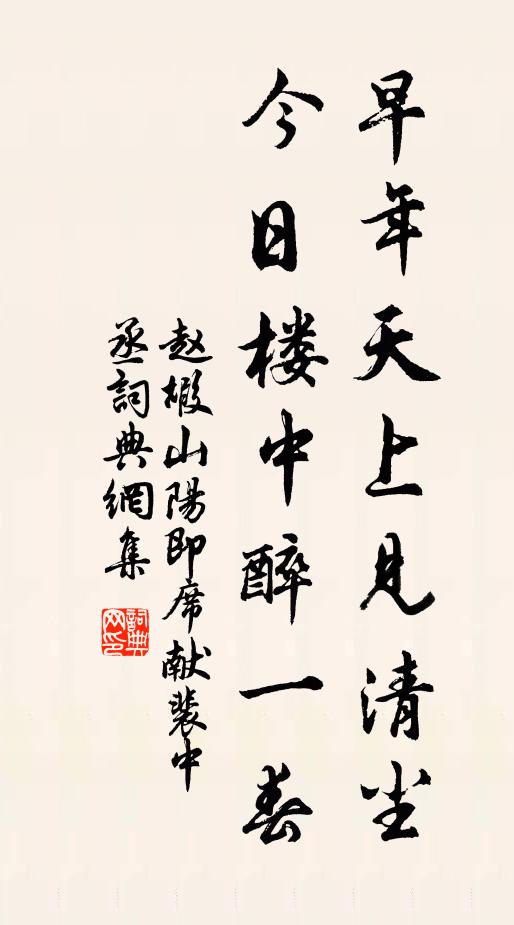 早年天上见清尘
今日楼中醉一春
赵嘏山陽即席献裴中
丞詞典網集
詞典網印